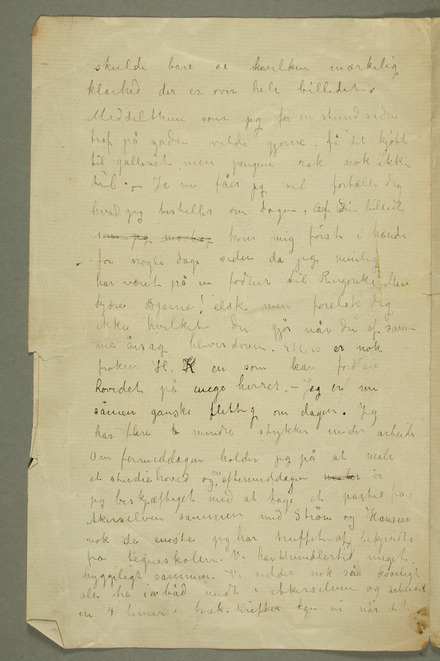 skulde bare se hvilken mærkelig
klarhed der er over hele billedet.
Middelthun som jeg for en stund siden
traf på gaden vilde gjerne få det kjøbt
til galleriet men pengene rak nok ikke
til. – Ja nu får jeg vel fortælle dig
hvad jeg bestiller om dagen. Af Din billedt
som jeg mærker kom mig først i hænde
for nogle dage siden da jeg nemlig
har været på en fodtur til Ringerike. Men
kjære Bjarne! elsk men forelsk dig
ikke hvilket Du gjør når Du af samme
årsag bliver doven. er nok
frøken H. R en som kan fordreie
hovedet på unge herrer. – Jeg er nu
sånen ganske flittig om dagen. Jeg
har flere mindre stykker under arbeide
Om formiddagen holder jeg på at male
et studiehoved og om eftermiddagen er
jeg beskjæftiget med at tage et parti fra
Akerselven sammen med Strøm og Hansen
nok de eneste jeg har truffet af bekjendte
fra tegneskolen. Vi har imidlertid meget
hyggeligt sammen. Vi sidder nok så koseligt
alle tre i en båd midt i Akerselven og arbeider
en 4 timer i træk. vi når det